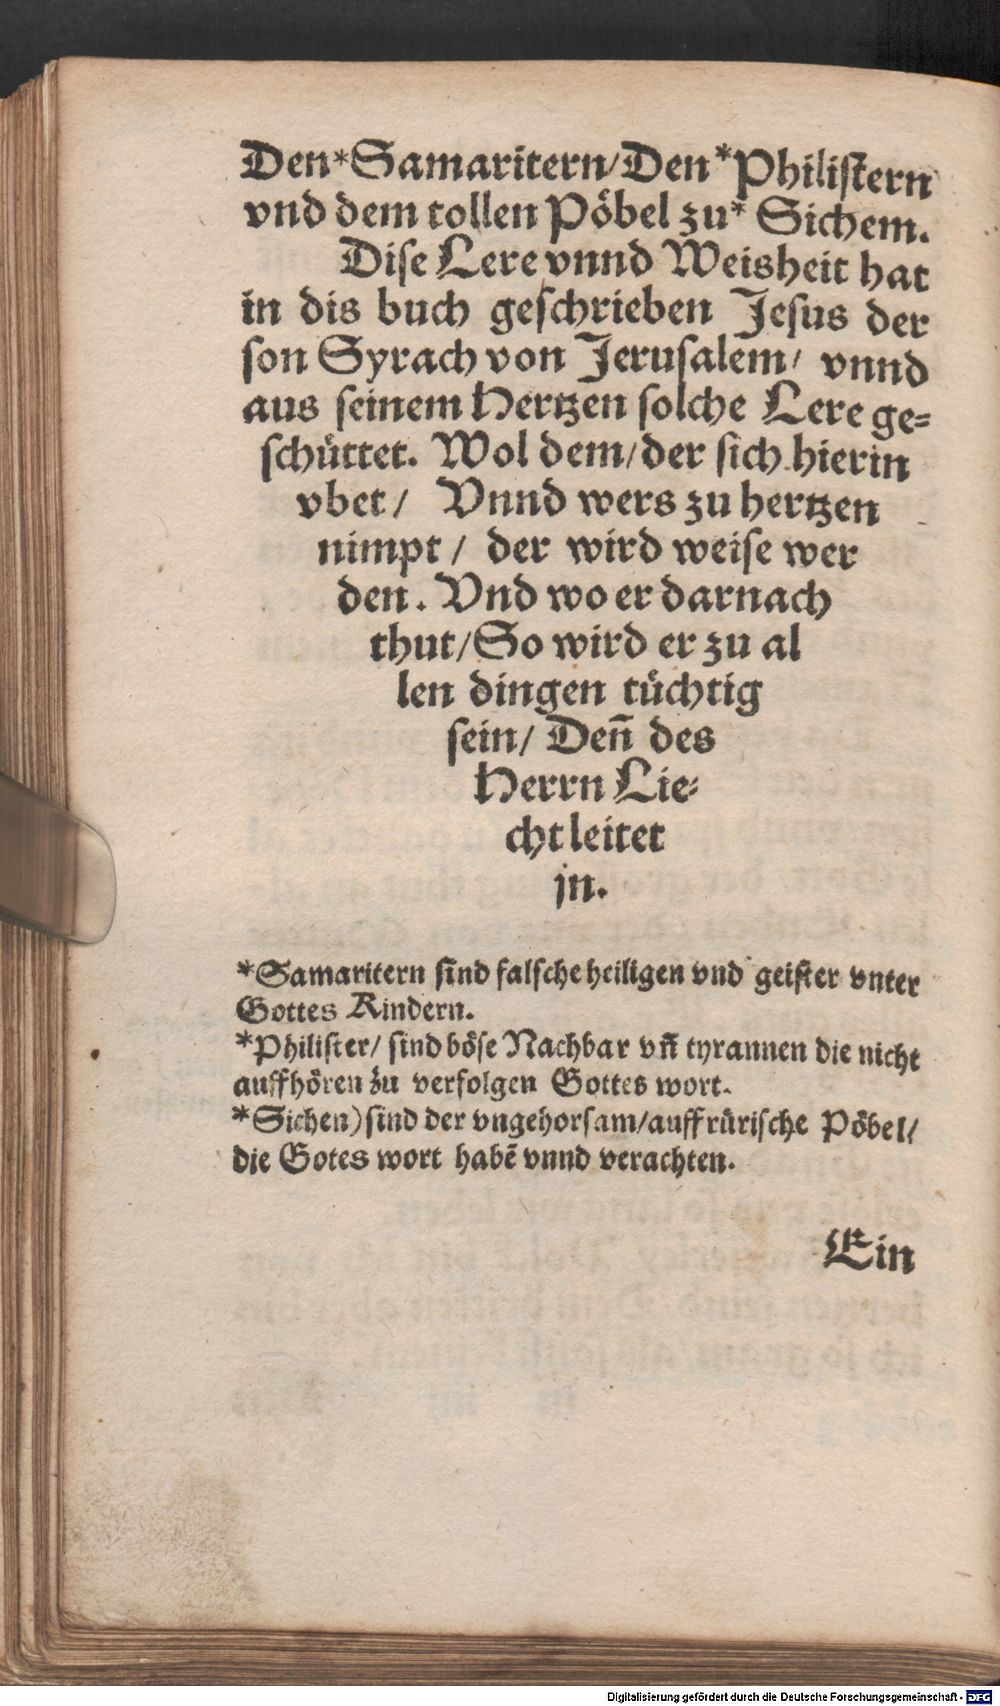 Den*Samaritern/Den*Philistern
vnd dem tollen Pöbel zu* Sichem.
Dise Lere vnnd Weisheit hat
in dis buch geschrieben Jesus der
son Syrach von Jerusalem/ vnnd
aus seinem Hertzen solche Lere ge=
schüttet. Wol dem/der sich hierin
vbet/ Vnnd wers zu hertzen
nimpt/ der wird weise wer
den. Vnd wo er darnach
thut/So wird er zu al
len dingen tüchtig
sein/ Deñ des
Herrn Lie=
cht leitet
jn.
*Samaritern sind falsche heiligen vnd geister vnter
Gottes Kindern.
*Philister/ sind böse Nachbar vñ tyrannen die nicht
auffhören zu verfolgen Gottes wort.
*Sichen)sind der vngehorsam/auffrürische Pöbel/
die Gotes wort habē vnnd verachten.
Ein
Digitalisierung gefördert durch die Deutsche Forschungsgemeinschaft - DFG